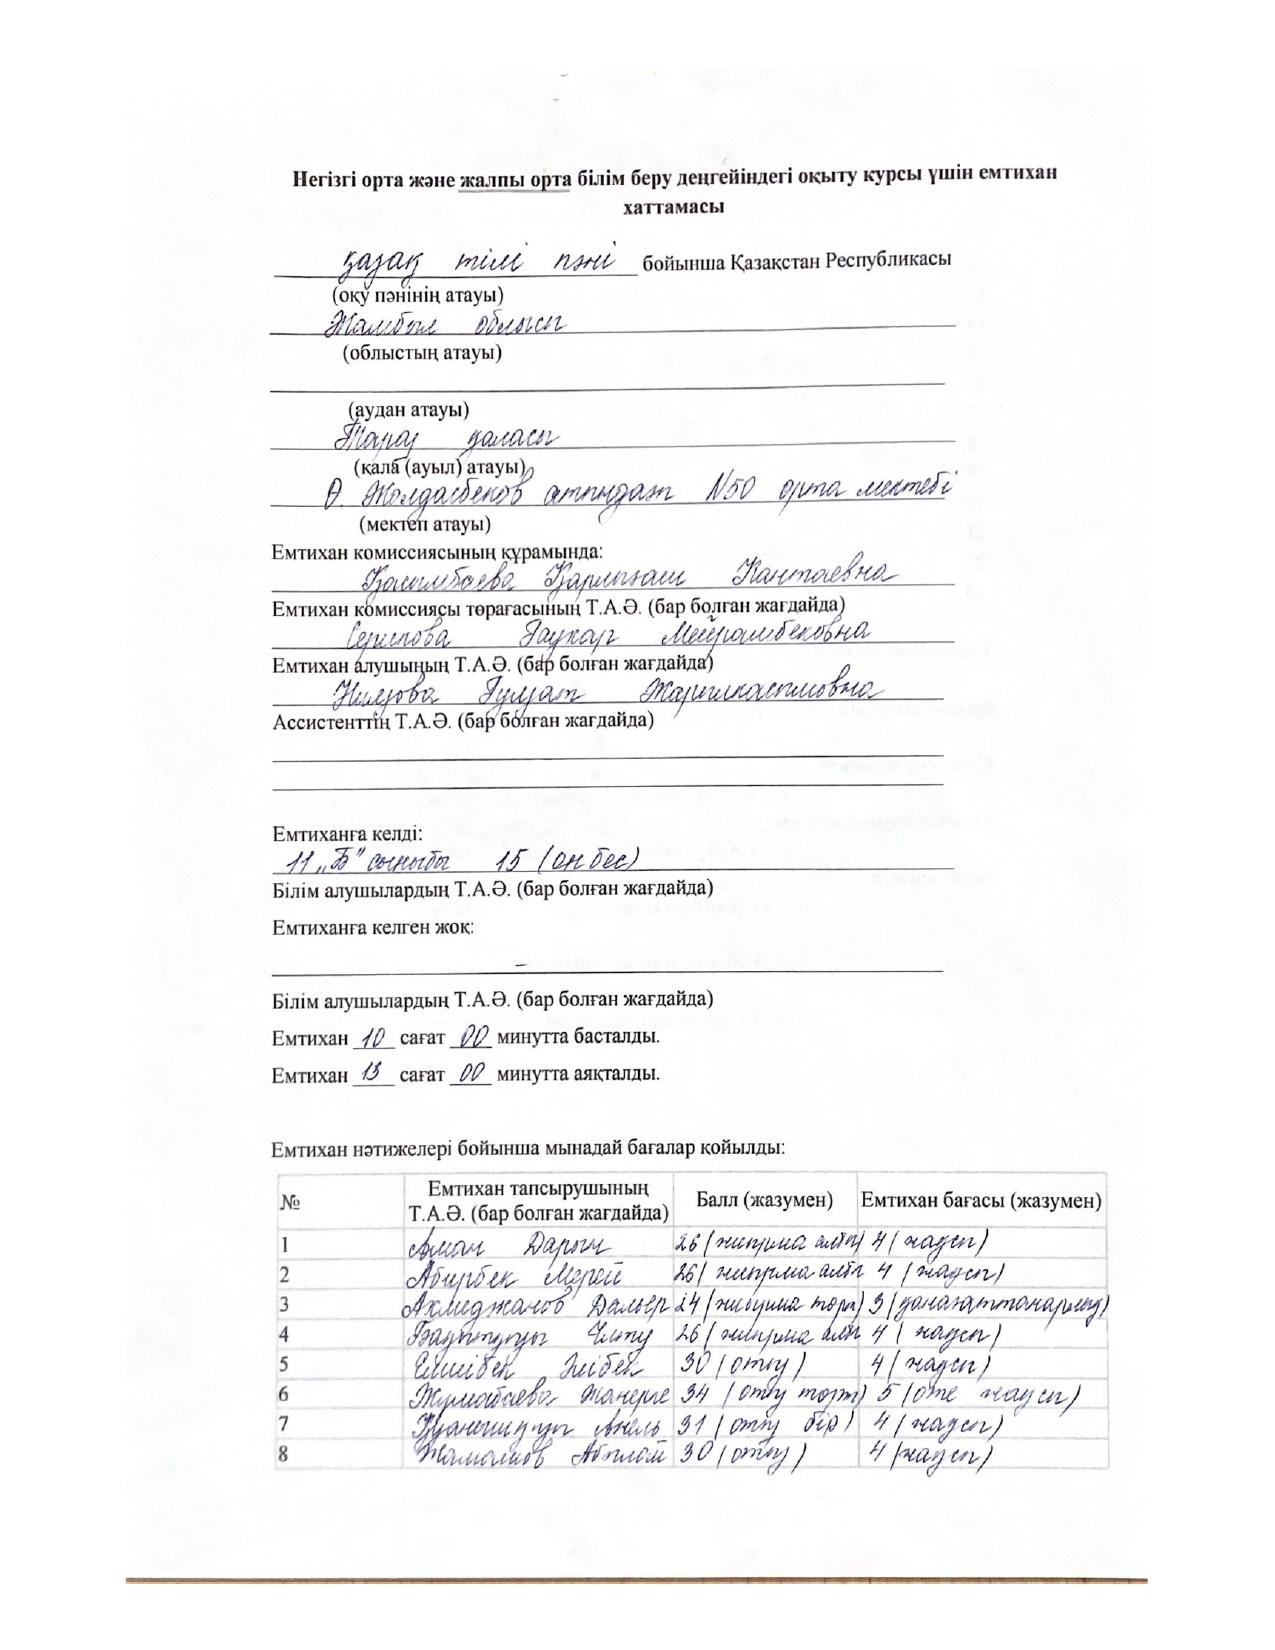 Негізгі орта және жалпы орта білім беру деңгейіндегі оқыту курсы үшін емтихан
хаттамасы
қазақ тілі пәні бойынша Қазақстан Республикасы
(оқу пәнінің атауы)
Жамбыл облысы
(облыстың атауы)
(аудан атауы)
Тараз қаласы
(қала (ауыл) атауы)
Ө. Жолдасбеков атындағы №50 орта мектебі
(мектеп атауы)
Емтихан комиссиясының құрамында:
Қасымбаева Қарлығаш Кантаевна
Емтихан комиссиясы төрағасының Т.А.Ә. (бар болған жағдайда)
Серипова Гаухар Мейрамбековна
Емтихан алушының Т.А.Ә. (бар болған жағдайда)
Гулжат
Ассистенттің Т.А.Ә. (бар болған жағдайда)
Емтиханға келді:
11 „Б" сыныбы 15 (он бес)
Білім алушылардың Т.А.Ә. (бар болған жағдайда)
Емтиханға келген жоқ:
–
Білім алушылардың Т.А.Ә. (бар болған жағдайда)
Емтихан 10 сағат 00 минутта басталды.
Емтихан 13 сағат 00 минутта аяқталды.
Емтихан нәтижелері бойынша мынадай бағалар қойылды:
№ Емтихан тапсырушының Т.А.Ә. (бар болған жағдайда) Балл (жазумен) Емтихан бағасы (жазумен)
1 Аман Дарын 26 (жиырма алты) 4 (жақсы)
2 Абирбек Мерей 26 (жиырма алты 4 (жақсы)
3 Ахмеджанов Дальер 24 (жиырма төрт) 3 (қанағаттанарлық)
4 26 (жиырма алты 4 (жақсы)
5 Елшібек Әлібек 30 (отыз) 4 (жақсы)
6 Жумабаева Жанерке 34 (отыз төрт) 5 (өте жақсы)
7 Анель 31 (отыз бір) 4 (жақсы)
8 Абылай 30 (отыз) 4 (жақсы)